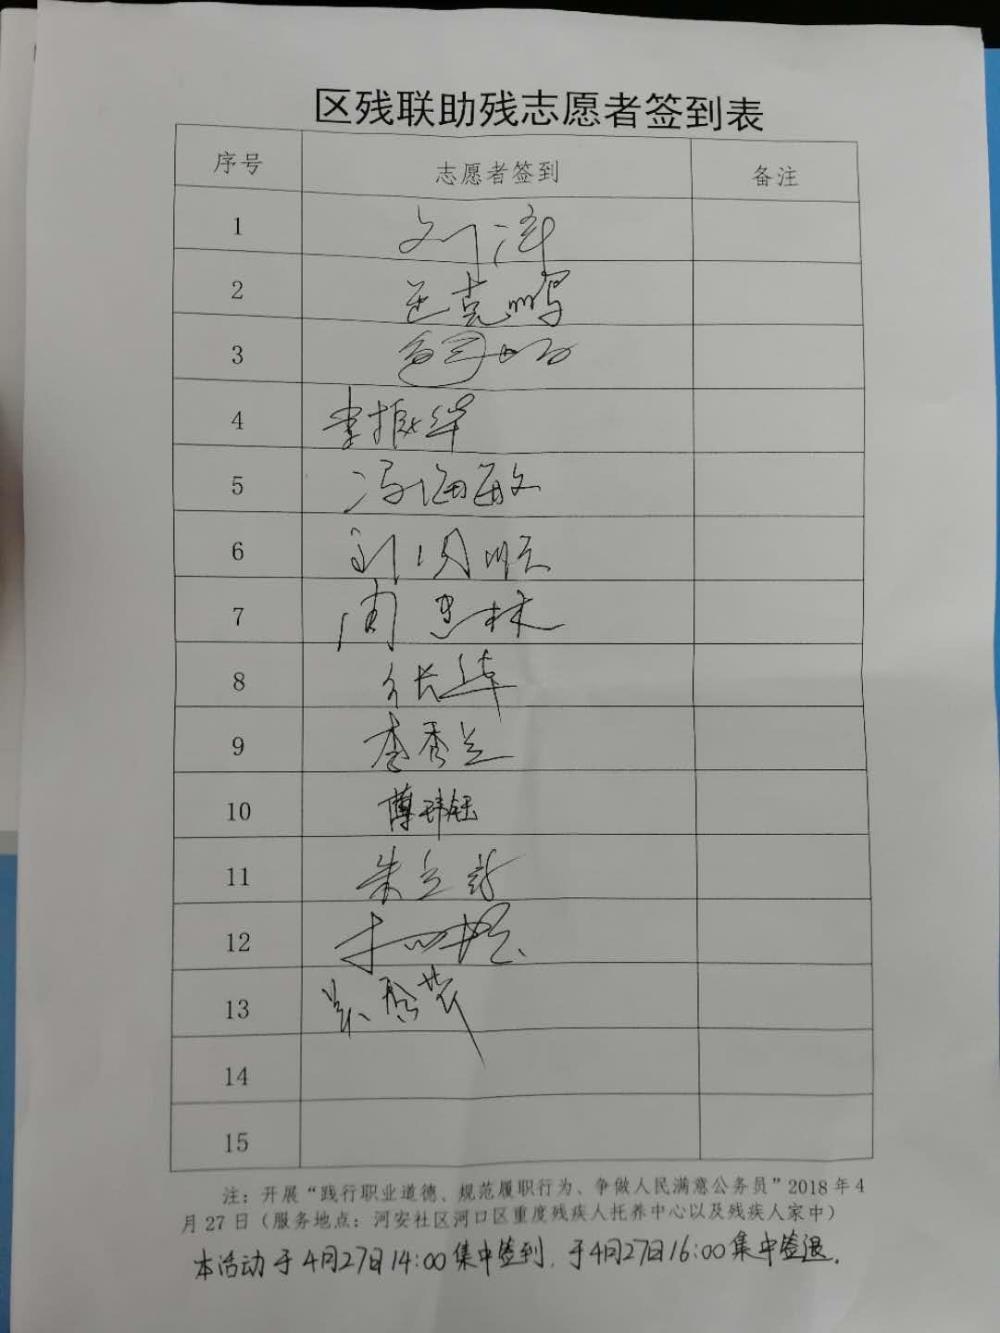 区残联助残志愿者签到表
序号 志愿者签到 备注
1 刘洋
2 王克鹏
3
4 李振华
5 冯海敏
6 刘闪顺
7 周忠林
8
9 李秀兰
10 薄玮钰
11 朱立新
12
13
14
15
注：开展“践行职业道德、规范履职行为、争做人民满意公务员”2018年4
月27日（服务地点：河安社区河口区重度残疾人托养中心以及残疾人家中）
本活动于4月27日14:00集中签到，于4月27日16:00集中签退。